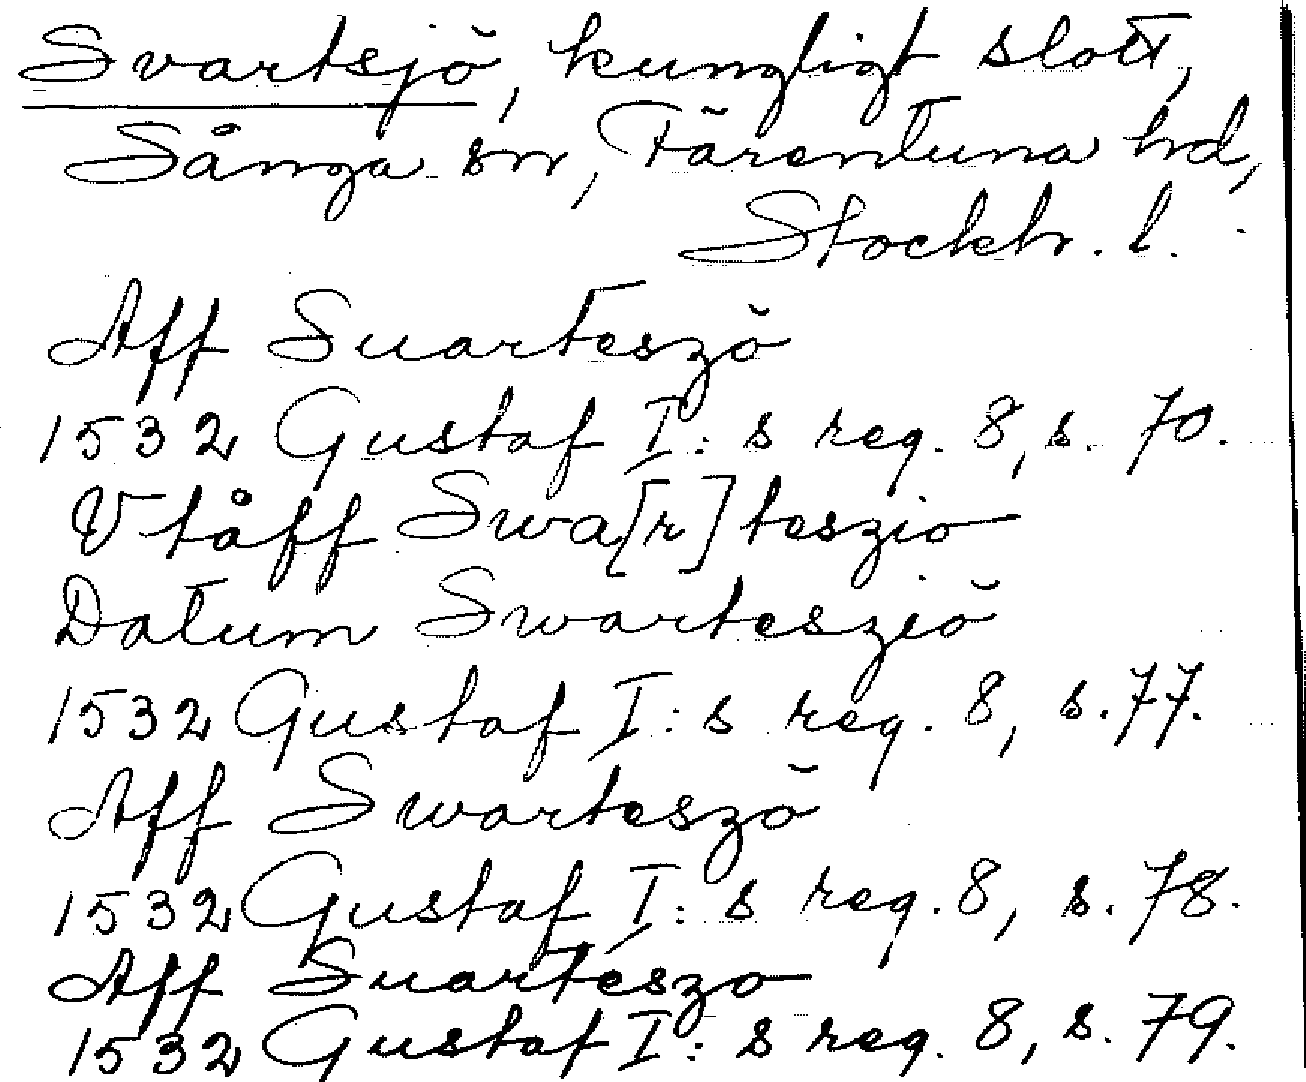 Svartsjö, kungligt slott,
Sånga sn, Färentuna hd,
Stockh. l.
Aff Suarteszö
1532 Gustaf I: s reg. 8, s. 70.
Vtåff Swa[r]teszio
Datum Swartesziö
1532 Gustaf I: s reg. 8, s. 77.
Aff Swarteszö
1532 Gustaf I: s reg. 8, s. 78.
Aff Suarteszo
1532 Gustaf I: s reg. 8, s. 79.